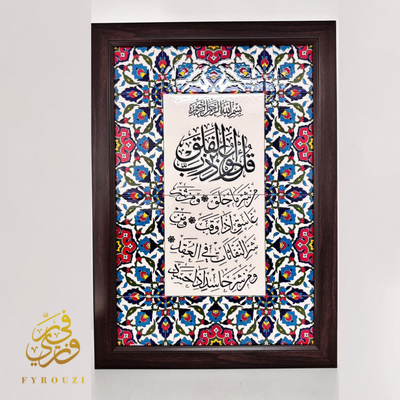 بسم الله الرحمن الرحيم
قل أعوذ برب الفلق
من شر ما خلق ومن شر
غاسق إذا وقب ومن
شر النفاثات في العقد
ومن شر حاسد إذا حسد
فيروزي
FYROUZI